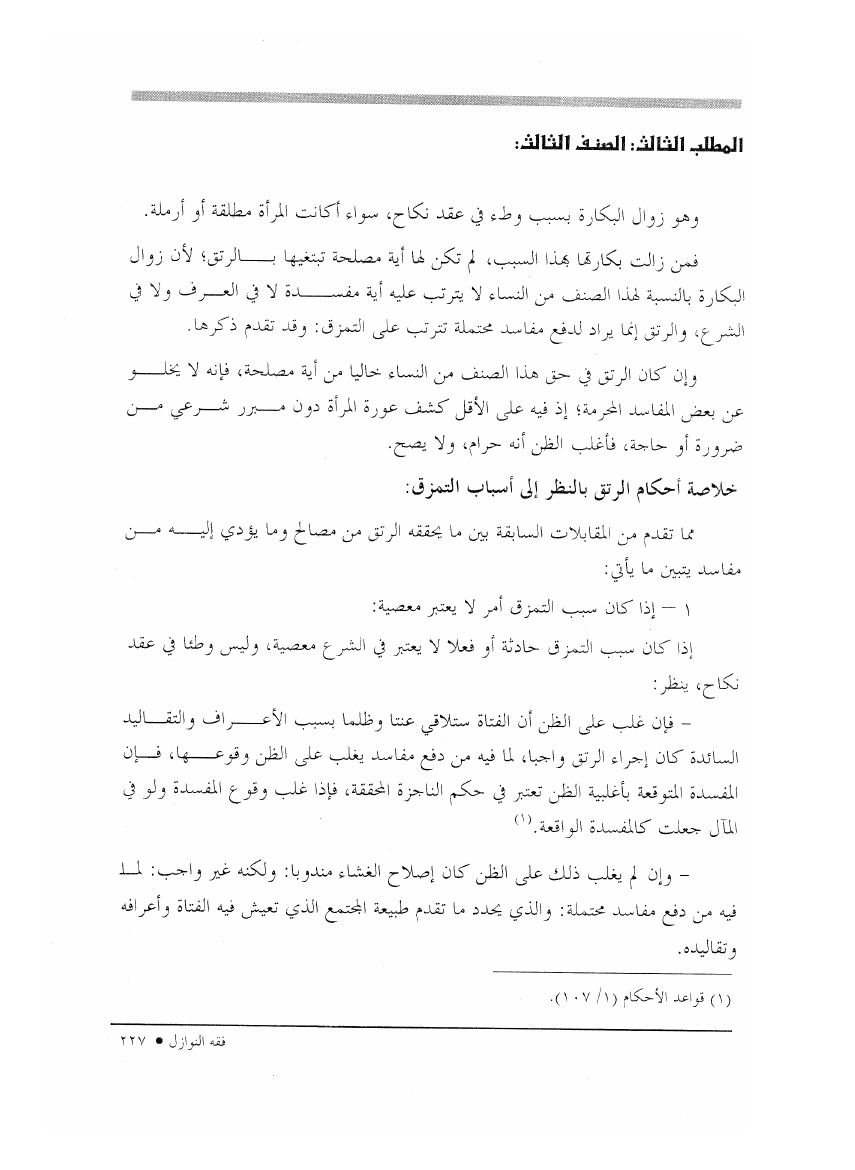 المطلب الثالث: الصنف الثالث:
وهو زوال البكارة بسبب وطء في عقد نكاح، سواء أكانت المرأة مطلقة أو أرملة.
فمن زالت بكارتها بهذا السبب، لم تكن لها أية مصلحة تبتغيها بالرتق؛ لأن زوال
البكارة بالنسبة لهذا الصنف من النساء لا يترتب عليه أية مفسدة لا في العرف ولا في
الشرع، والرتق إنما يراد لدفع مفاسد محتملة تترتب على التمزق: وقد تقدم ذكرها.
وإن كان الرتق في حق هذا الصنف من النساء خاليا من أية مصلحة، فإنه لا يخلو
عن بعض المفاسد المحرمة؛ إذ فيه على الأقل كشف عورة المرأة دون مبرر شرعي من
ضرورة أو حاجة، فأغلب الظن أنه حرام، ولا يصح.
خلاصة أحكام الرتق بالنظر إلى أسباب التمزق:
مما تقدم من المقابلات السابقة بين ما يحققه الرتق من مصالح وما يؤدي إليه من
مفاسد يتبين ما يأتي:
١ – إذا كان سبب التمزق أمر لا يعتبر معصية:
إذا كان سبب التمزق حادثة أو فعلا لا يعتبر في الشرع معصية، وليس وطئا في عقد
نكاح، ينظر:
– فإن غلب على الظن أن الفتاة ستلاقي عنتا وظلما بسبب الأعراف والتقاليد
السائدة كان إجراء الرتق واجبا، لما فيه من دفع مفاسد يغلب على الظن وقوعها، فإن
المفسدة المتوقعة بأغلبية الظن تعتبر في حكم الناجزة المحققة، فإذا غلب وقوع المفسدة ولو في
المآل جعلت كالمفسدة الواقعة.(١)
– وإن لم يغلب ذلك على الظن كان إصلاح الغشاء مندوبا: ولكنه غير واجب: لما
فيه من دفع مفاسد محتملة: والذي يحدد ما تقدم طبيعة المجتمع الذي تعيش فيه الفتاة وأعرافه
وتقاليده.
(١) قواعد الأحكام (١/ ١٠٧).
فقه النوازل • ٢٢٧